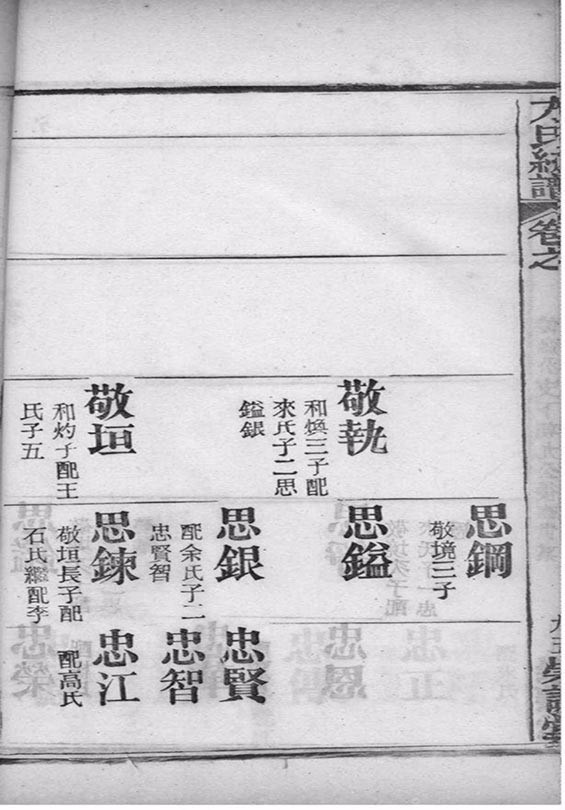 敬執
和煥三子配
來氏子二思
鎰銀
敬垣
和灼子配王
氏子五
思鋼
敬境三子
思鎰
思銀
配余氏子二
忠賢智
思鍊
敬垣長子配
石氏繼配李
忠賢
忠智
忠江
配高氏